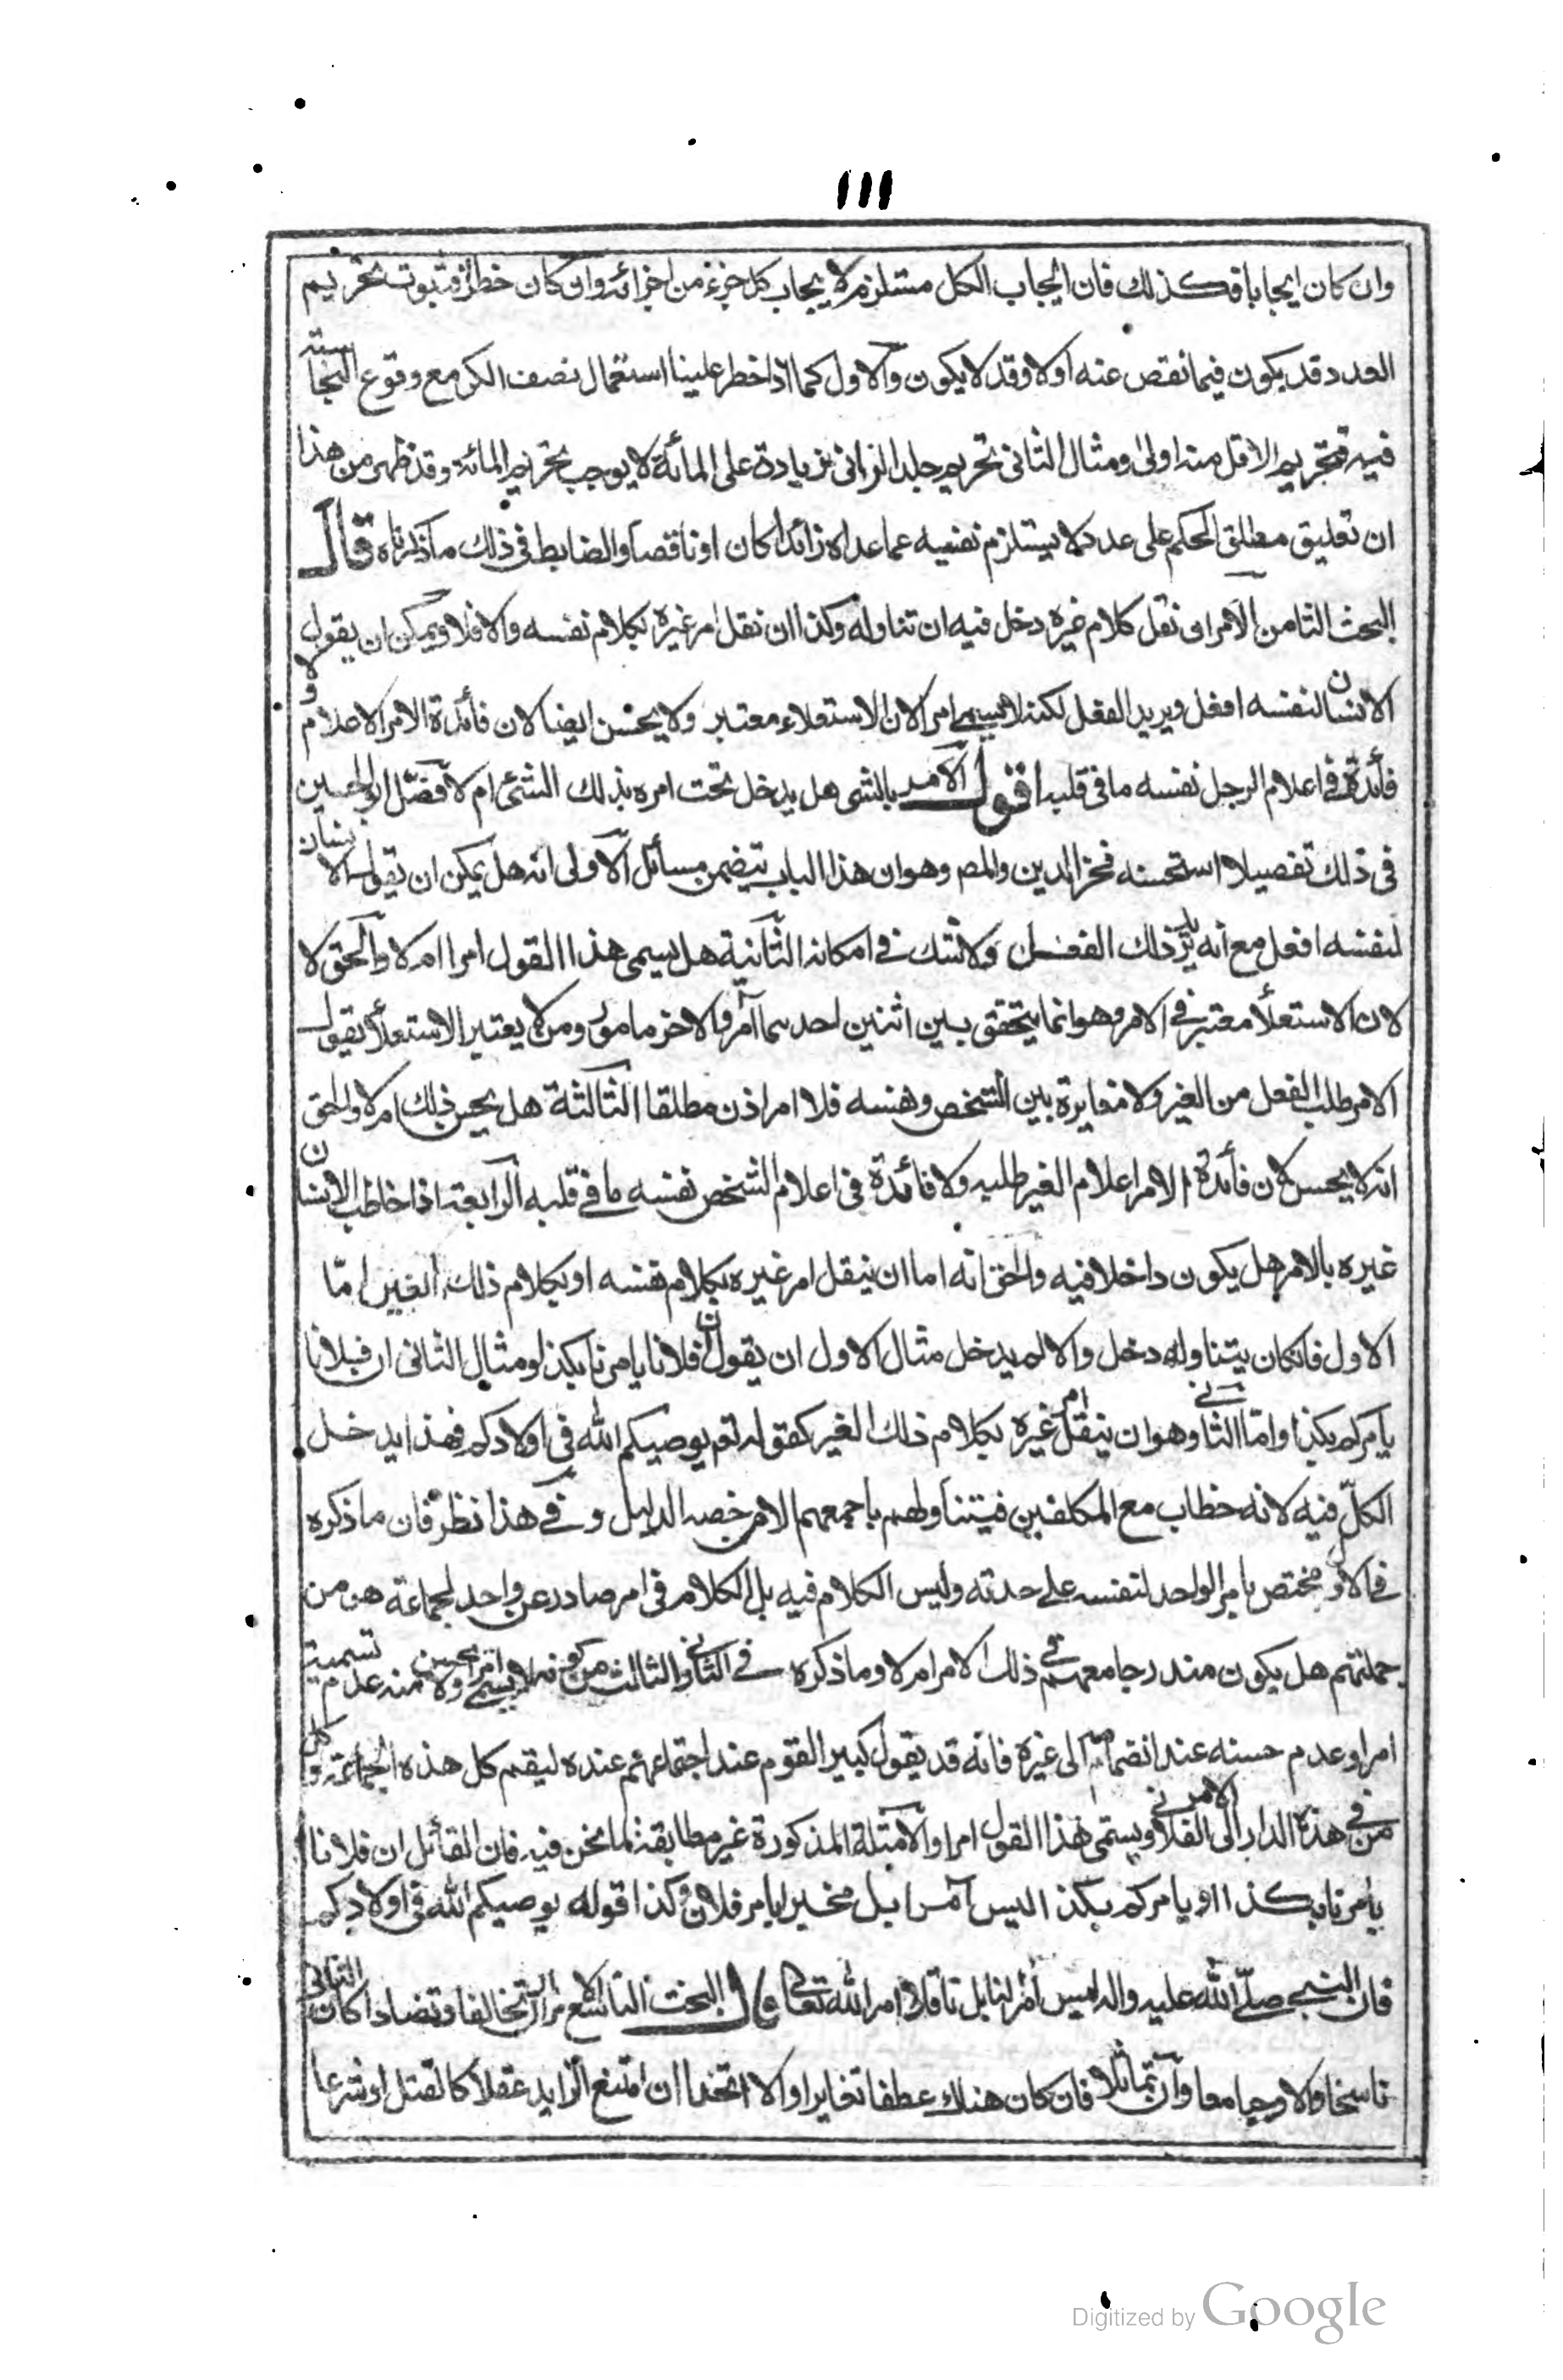 ١١١
وان كان ايجابا فكذلك فان ايجاب الكل مستلزم لايجاب كل جزء من اجزائه وان كان خطرا فثبوت تحريم
العدد قد يكون فيما نقص عنه اولا وقد لا يكون والاول كما اذا خطر علينا استعمال نصف الكر مع وقوع النجاسة
فيه فتحريم الاقل منه اولى ومثال الثانى تحريم جلد الزانى بزيادة على المائة لا يوجب تحريم المائة وقد ظهر من هذا
ان تعليق مطلق الحكم على عدد لا يستلزم نفيه عما عداه زائدا كان او ناقصا والضابط فى ذلك ما ذكرناه قال
البحث الثامن الامر ان نقل كلام غيره دخل فيه ان تناوله وكذا ان نقل امر غيره بكلام نفسه والا فلا ويمكن ان يقول
الانسان لنفسه افعل ويريد الفعل لكنه لا يسمى امرا لان الاستعلاء معتبر ولا يحسن ايضا لان فائدة الامر الاعلام ولا
فائدة فى اعلام الرجل نفسه ما فى قلبه اقول الآمر بالشى هل يدخل تحت امره بذلك الشئ ام لا فصّل ابو الحسين
فى ذلك تفصيلا استحسنه فخر الدين والمص وهو ان هذا الباب يتضمن مسائل الاولى انه هل يمكن ان يقول الانسان
لنفسه افعل مع أنه يريد ذلك الفعل ولا شك فى امكانه الثانية هل يسمى هذا القول امرا ام لا والحق لا
لان الاستعلأ معتبر فى الامر وهو انما يتحقق بين اثنين احدهما آمر والاخر مامور ومن لا يعتبر الاستعلأ يقول
الامر طلب الفعل من الغير ولا مغايرة بين الشخص ونفسه فلا امر اذن مطلقا الثالثة هل يحسن ذلك ام لا والحق
انه لا يحسن لان فائدة الامر اعلام الغير طلبه ولا فائدة فى اعلام الشخص نفسه ما فى قلبه الرابعة اذا خاطب الانسان
غيره بالامر هل يكون داخلا فيه والحق انه اما ان ينقل امر غيره بكلام نفسه او بكلام ذلك الغير امّا
الاول فان كان يتناوله دخل والا لم يدخل مثال الاول ان يقول ان فلانا يامرنا بكذا ومثال الثانى ان فلانا
يأمركم بكذا وامّا الثانى وهو ان ينقل امر غيره بكلام ذلك الغير كقوله تعم يوصيكم الله فى اولادكم فهذا يدخل
الكلّ فيه لانه خطاب مع المكلفين فيتناولهم باجمعهم الا من خصه الدليل وفى هذا نظر فان ما ذكره
فى الاول مختص بامر الواحد لنفسه على حدته وليس الكلام فيه بل الكلام فى امر صادر عن واحد لجماعة هو من
جملتهم هل يكون مندرجا معهم فى ذلك الامر ام لا وما ذكره فى الثانى والثالث من كونه لا يسمى امرا ولا يحسن منه عدم تسميته
امرا وعدم حسنه عند انضمامه الى غيره فانه قد يقول كبير القوم عند اجتماعهم عنده ليقم كل هذه الجماعة وكل
من فى هذه الدار الى الامر الفلانى ويسمى هذا القول امرا والامثلة المذكورة غير مطابقة لما نحن فيه فان القائل ان فلانا
يأمرنا بكذا او يامركم بكذا ليس آمرا بل مخبرا بامر فلان وكذا قوله يوصيكم الله فى اولادكم
فان النبى صلّى الله عليه واله ليس آمرا لنا بل ناقلا امر الله تعالى قال البحث التاسع الامران ان تخالفا وتضادا كان الثانى
ناسخا والا وجبا معا وان تماثلا فان كان هناك عطف تغايرا والا اتحدا ان امتنع التزايد عقلا كالقتل او شرعا
Digitized by Google